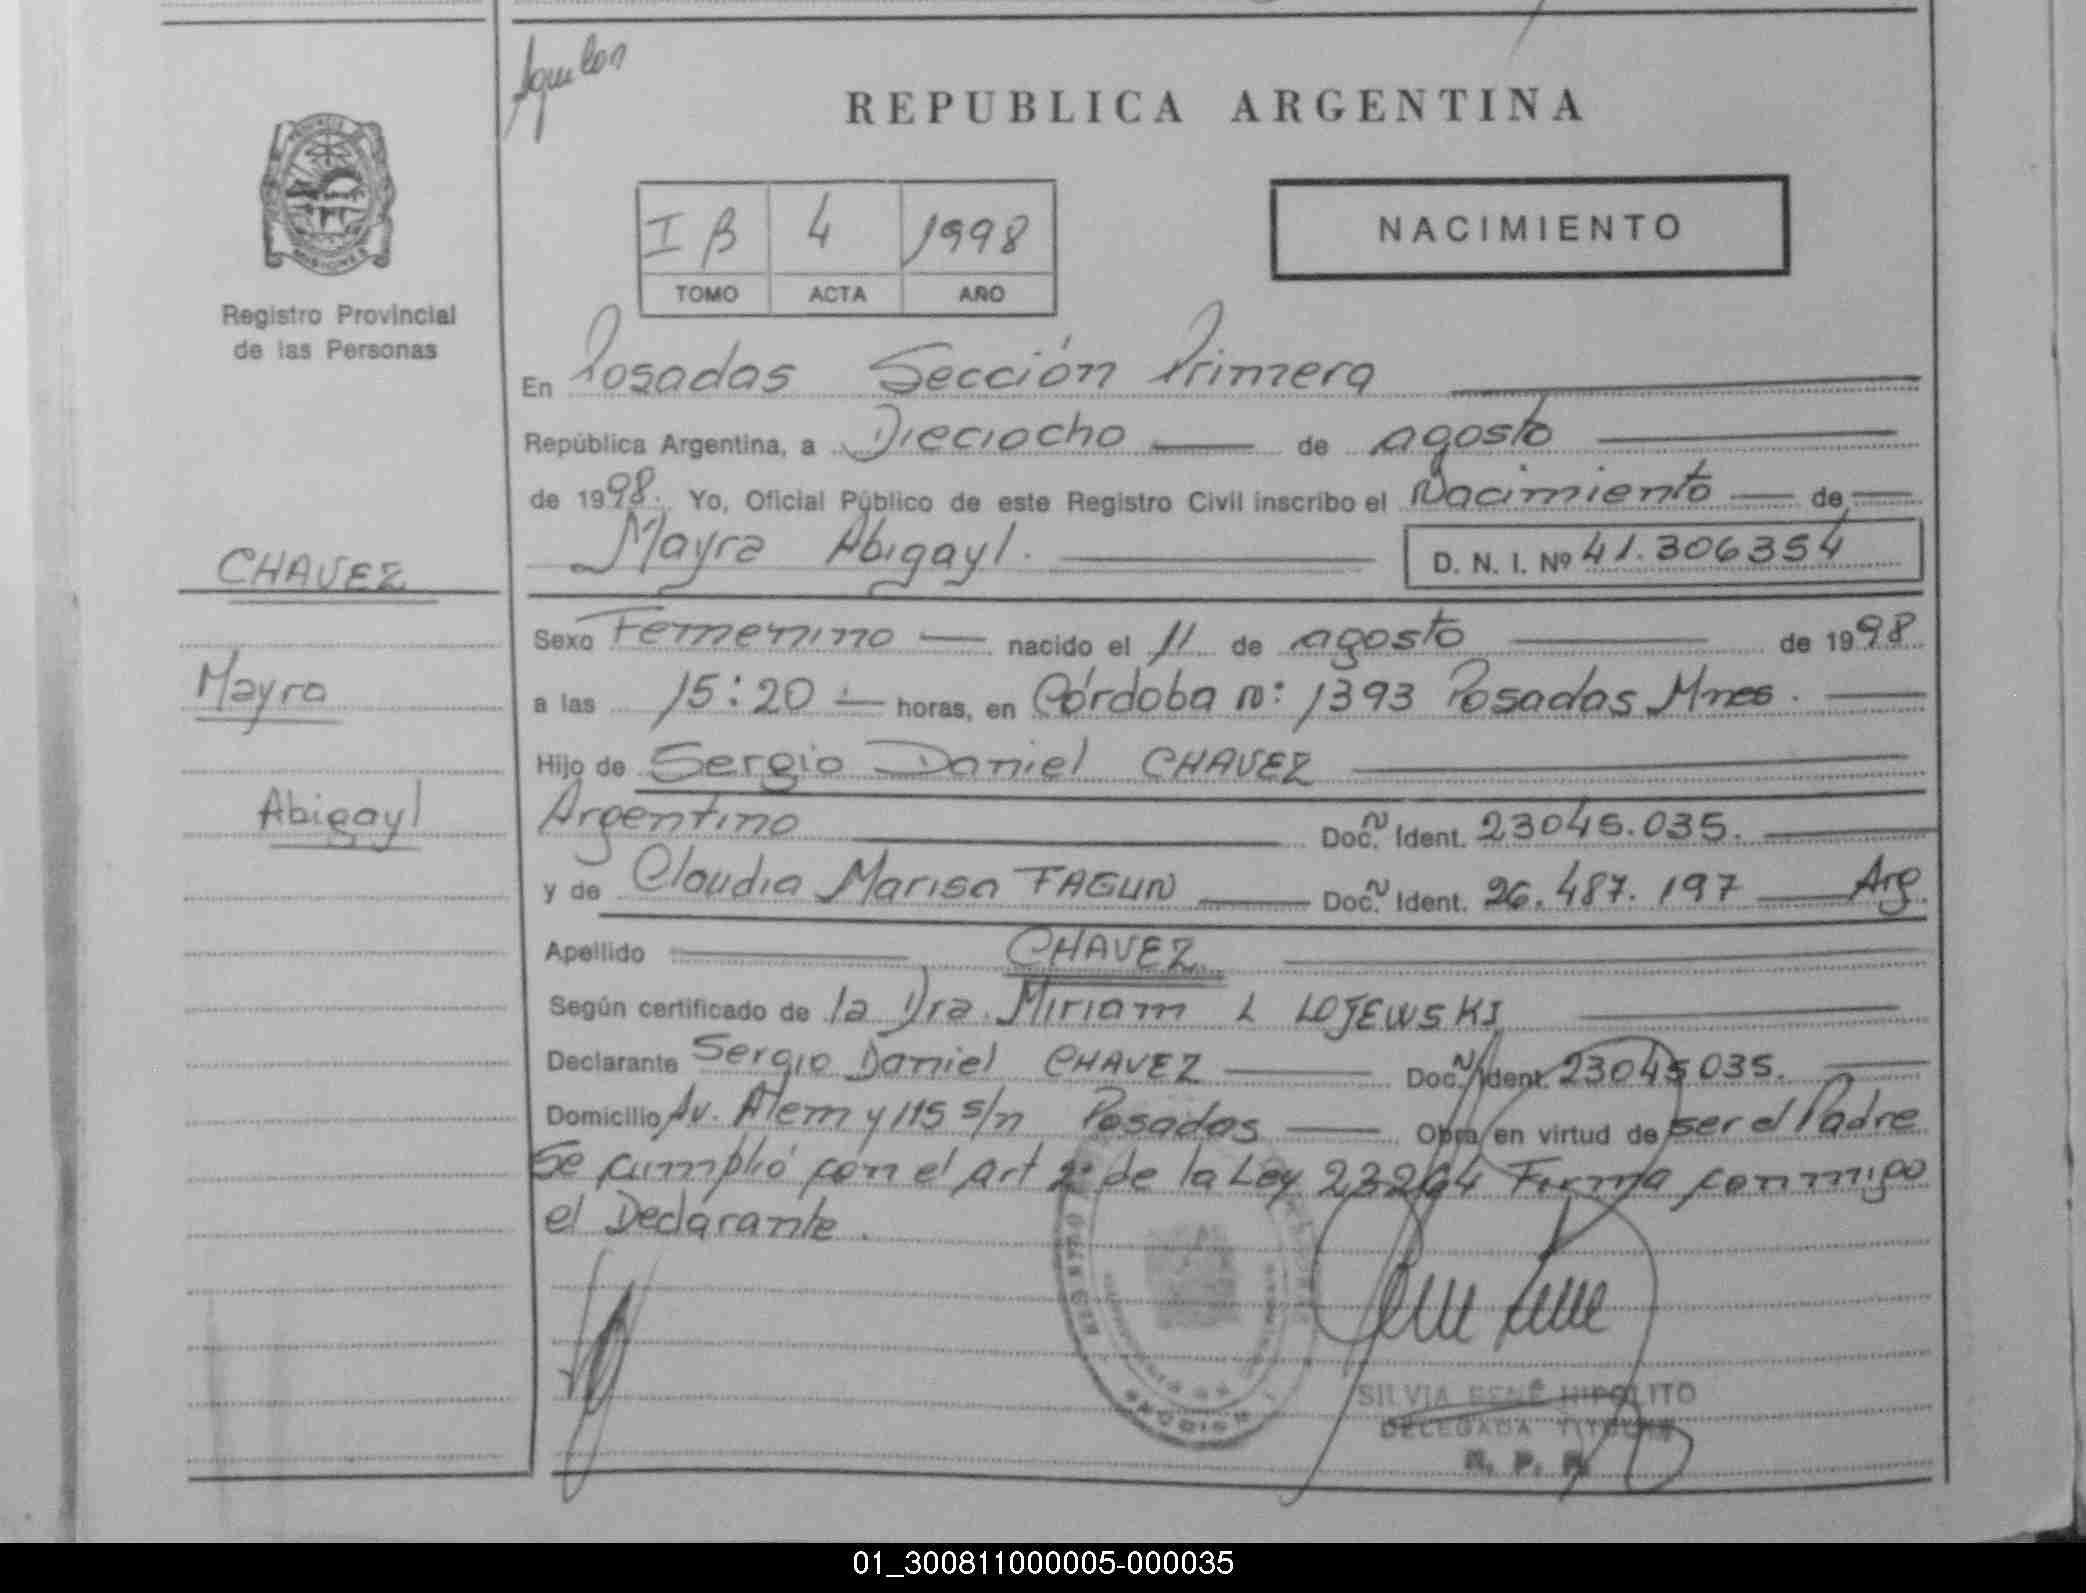 REPUBLICA ARGENTINA
I B 4 1998
TOMO ACTA AÑO
NACIMIENTO
Registro Provincial
de las Personas
CHAVEZ
Mayra
Abigayl
En Posadas Sección Primera
República Argentina, a Dieciocho de agosto
de 1998. Yo, Oficial Público de este Registro Civil inscribo el Nacimiento de
Mayra Abigayl. D. N. I. Nº 41.306354
Sexo Femenino nacido el 11 de agosto de 1998
a las 15:20 horas, en Córdoba n: 1393 Posadas Mnes.
Hijo de Sergio Daniel CHAVEZ
Argentino Doc. N Ident. 23045.035.
y de Claudia Marisa FAGUN Doc. N Ident. 26.487.197 Arg
Apellido CHAVEZ
Según certificado de la Dra. Miriam L LOJEWSKI
Declarante Sergio Daniel CHAVEZ Doc. N Ident. 23045035.
Domicilio Av. Alem y 115 s/n Posadas Obra en virtud de ser el Padre
Se cumplió con el art 2º de la Ley 23264 Firma conmigo
el Declarante.
SILVIA RENÉ HIPOLITO
DELEGADA TITULAR
R. P. P.
01_300811000005-000035